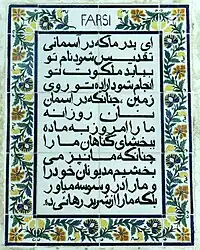 FARSI
ای پدر ما که در آسمانی
تقدیس شود نام تو
بیاید ملکوت تو
انجام شود اراده تو روی
زمین چنانکه در آسمان
نان روزانه
ما را امروز به ما ده
ببخشای گناهان ما را
چنانکه ما نیز می
بخشیم مدیونان خود را
و ما را در وسوسه میاور
بلکه ما را از شریر رهائی ده.